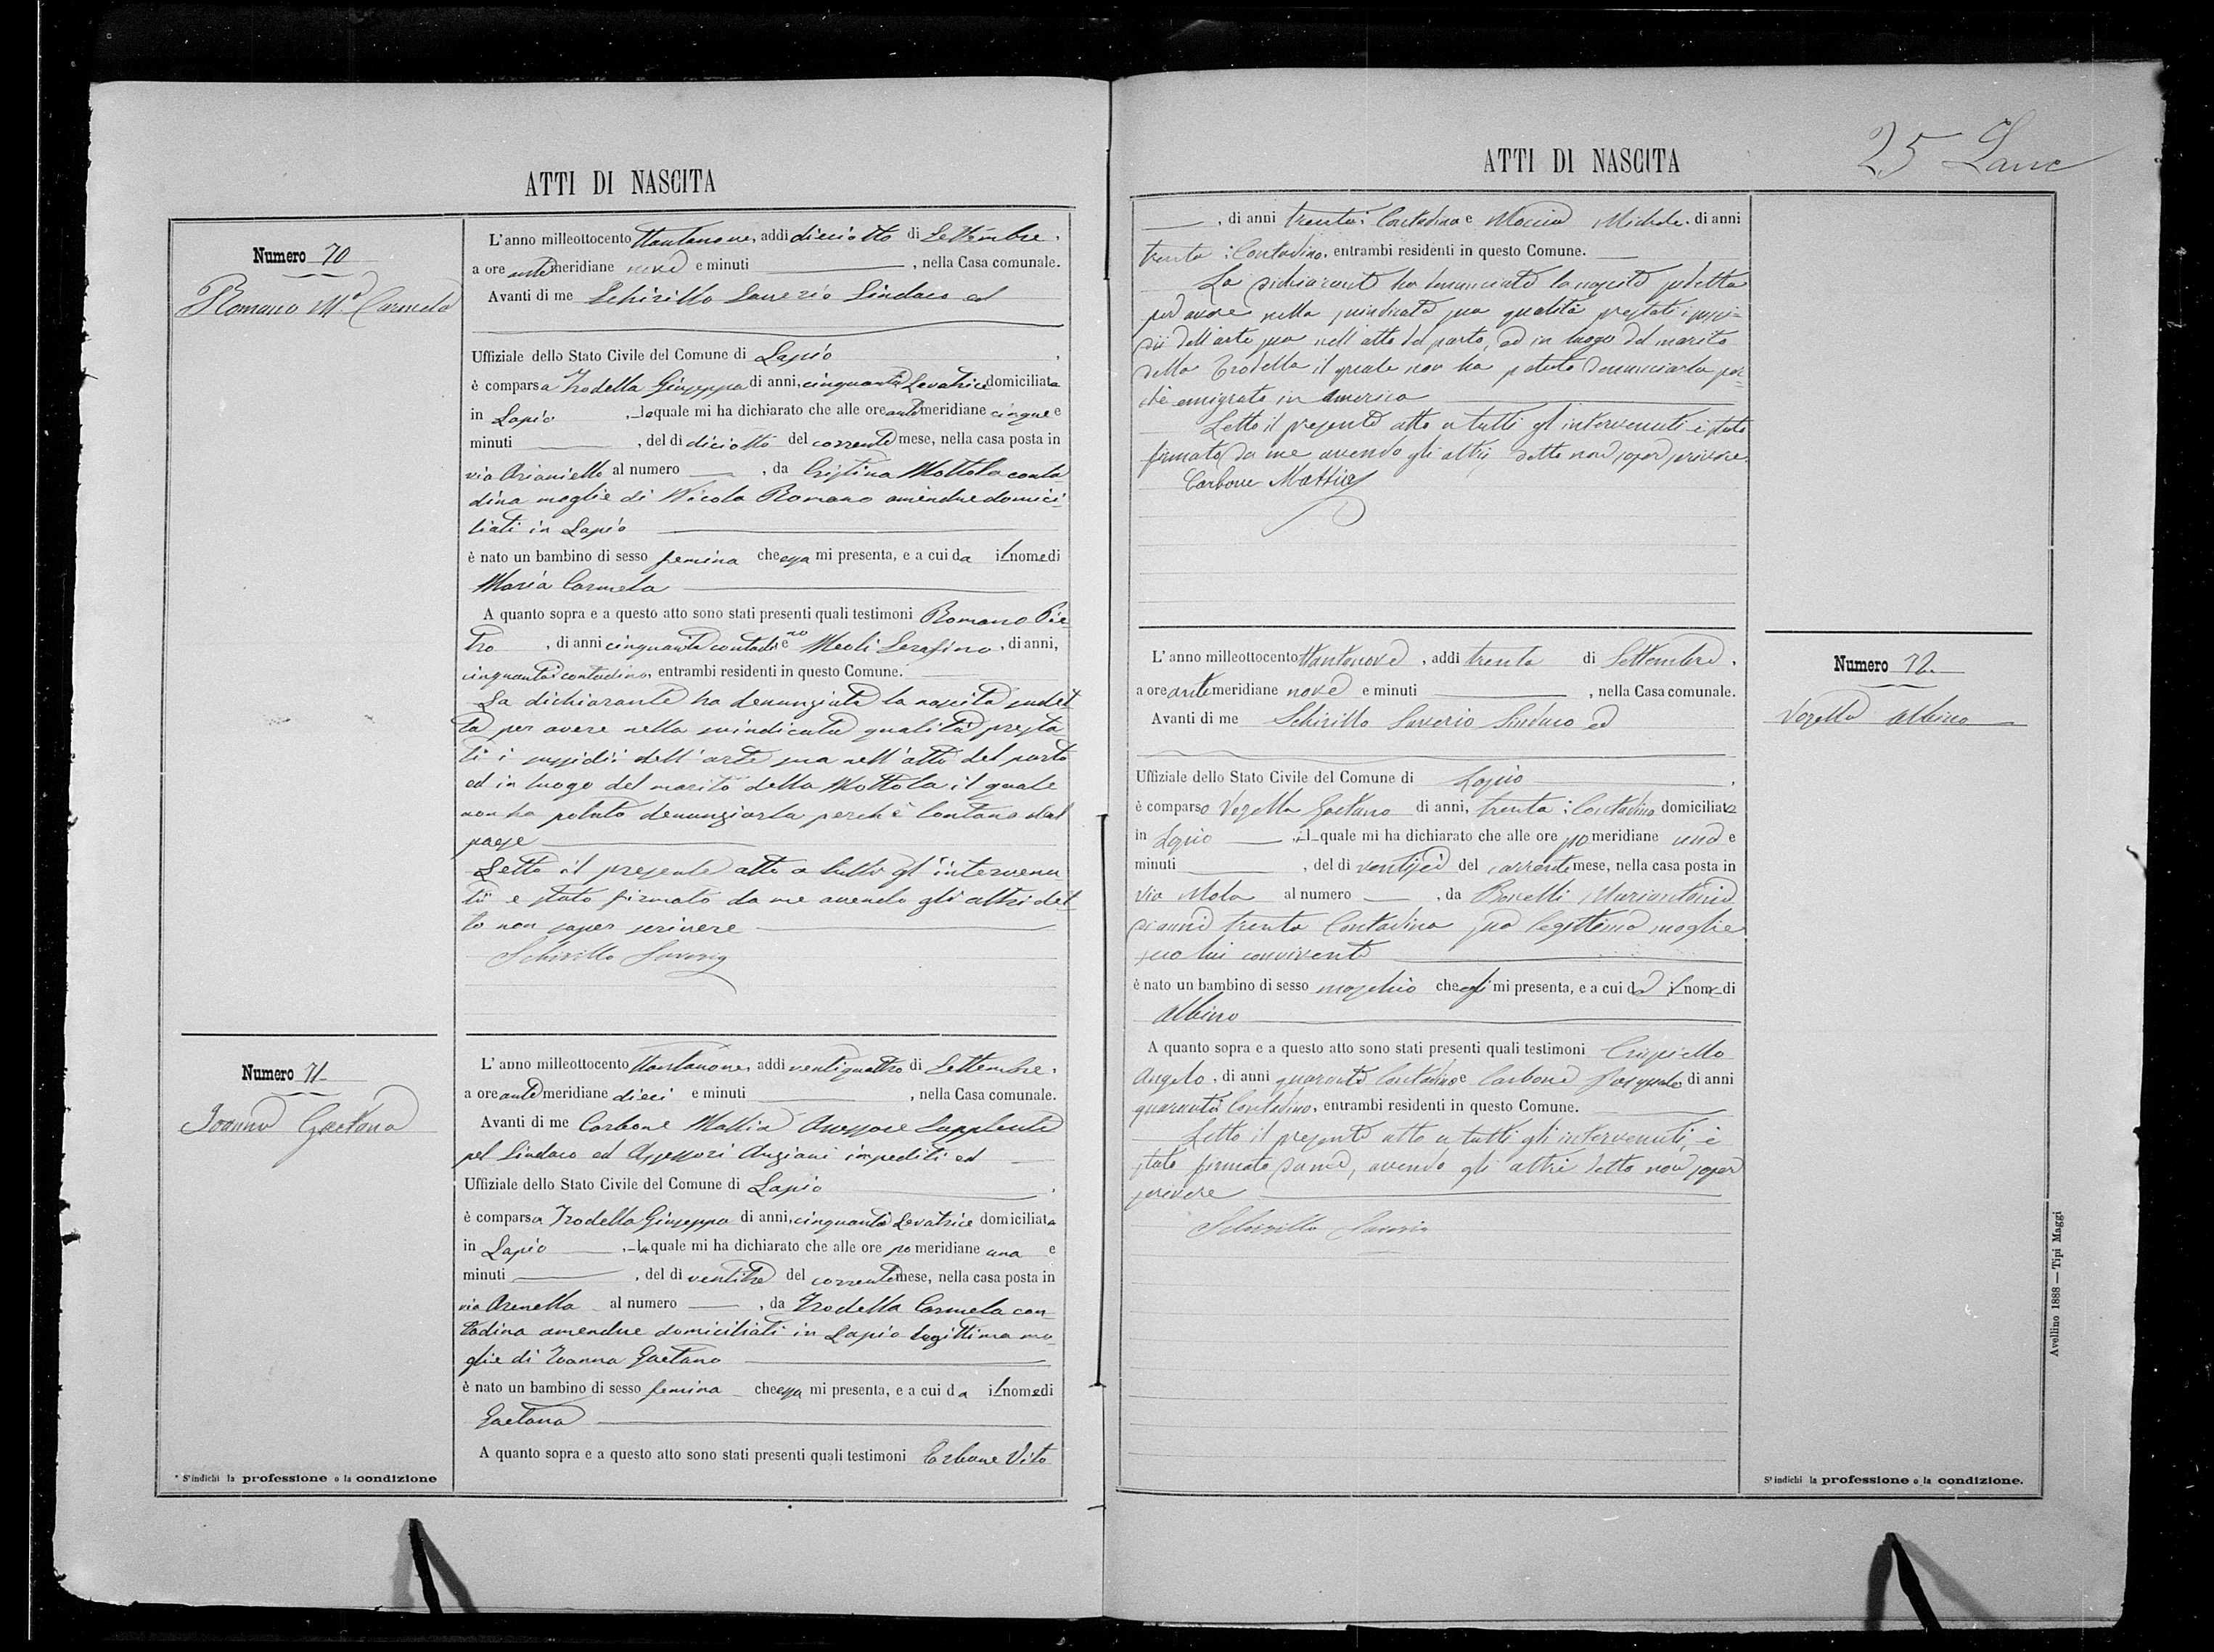 ATTI DI NASCITA
Numero 70
Romano Mª Carmela
L'anno milleottocento ottantanove, addi dieciotto di Settembre,
a ore antemeridiane nove e minuti , nella Casa comunale.
Avanti di me Schirillo Saverio Sindaco ed
Uffiziale dello Stato Civile del Comune di Lapio ,
è comparsa Trodella Giuseppa di anni, cinquanta Levatrice domiciliata
in Lapio , la quale mi ha dichiarato che alle ore antemeridiane cinque e
minuti , del dì diciotto del corrente mese, nella casa posta in
via Arianiello al numero , da Cristina Mottola conta
dina moglie di Nicola Romano amendue domici
liati in Lapio
è nato un bambino di sesso femina che essa mi presenta, e a cui da il nome di
Maria Carmela
A quanto sopra e a questo atto sono stati presenti quali testimoni Romano Pie
tro , di anni cinquanta contadino e Meoli Serafino, di anni,
cinquanta contadino, entrambi residenti in questo Comune.
La dichiarante ha denunziata la nascita sudet
ta per avere nella suindicata qualità presta
ti i sussidi dell'arte sua nell'atto del parto
ed in luogo del marito della Mottola il quale
non ha potuto denunziarla perchè lontano dal
paese
Letto il presente atto a tutti gl'intervenu
ti è stato firmato da me avendo gli altri det
to non saper scrivere
Schirillo Saverio
Numero 71
Ioanna Gaetana
L'anno milleottocento ottantanove, addi ventiquattro di Settembre,
a ore antemeridiane dieci e minuti , nella Casa comunale.
Avanti di me Carbone Mattia Assessore Supplente
pel Sindaco ed Assessori Anziani impediti ed
Uffiziale dello Stato Civile del Comune di Lapio ,
è comparsa Trodella Giuseppa di anni, cinquanta Levatrice domiciliata
in Lapio , la quale mi ha dichiarato che alle ore pomeridiane una e
minuti , del dì ventitre del corrente mese, nella casa posta in
via Arenella al numero , da Trodella Carmela con
tadina amendue domiciliati in Lapio legittima mo
glie di Ioanna Gaetano
è nato un bambino di sesso femina che essa mi presenta, e a cui da il nome di
Gaetana
A quanto sopra e a questo atto sono stati presenti quali testimoni Carbone Vito
* S'indichi la professione o la condizione
ATTI DI NASCITA
25
, di anni trenta: Contadino e Moccia Michele, di anni
trenta: Contadino, entrambi residenti in questo Comune.
La dichiarante ha denunciato la nascita sudetta
per avere nella suindicata sua qualità prestati i sussi
dii dell'arte sua nell'atto del parto, ed in luogo del marito
della Trodella il quale non ha potuto denunciarla per
chè emigrato in America
Letto il presente atto a tutti gl'intervenuti è stato
firmato da me avendo gli altri detto non saper scrivere.
Carbone Mattia
L'anno milleottocento ottantanove, addi trenta di Settembre,
a ore antemeridiane nove e minuti , nella Casa comunale.
Avanti di me Schirillo Saverio Sindaco ed
Uffiziale dello Stato Civile del Comune di Lapio ,
è comparso Vozella Gaetano di anni, trenta: Contadino domiciliato
in Lapio , il quale mi ha dichiarato che alle ore pomeridiane una e
minuti , del di ventisei del corrente mese, nella casa posta in
via Mola al numero , da Boselli Mariantonia
di anni trenta Contadina sua legittima moglie
seco lui convivente
è nato un bambino di sesso maschio che egli mi presenta, e a cui dà il nome di
Albino
A quanto sopra e a questo atto sono stati presenti quali testimoni Crispiello
Angelo, di anni quaranta Contadino e Carbone Pasquale di anni
quaranta Contadino, entrambi residenti in questo Comune.
Letto il presente atto a tutti gli intervenuti, è
stato firmato da me, avendo gli altri detto non saper
scrivere
Schirillo Saverio
Numero 72
Vozella Albino
S'indichi la professione o la condizione.
Avellino 1888 — Tipi Maggi